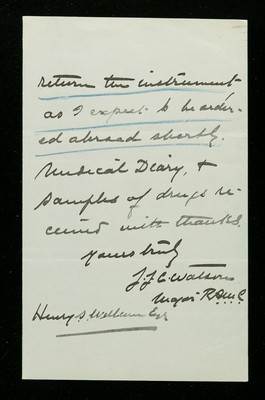 return the instrument
as I expect to be order-
ed abroad shortly.
Medical Diary, &
samples of drugs re-
ceived with thanks.
yours truly
J.J.C. Watson
Major R.A.M.C.
Henry S. Wellcome Esq